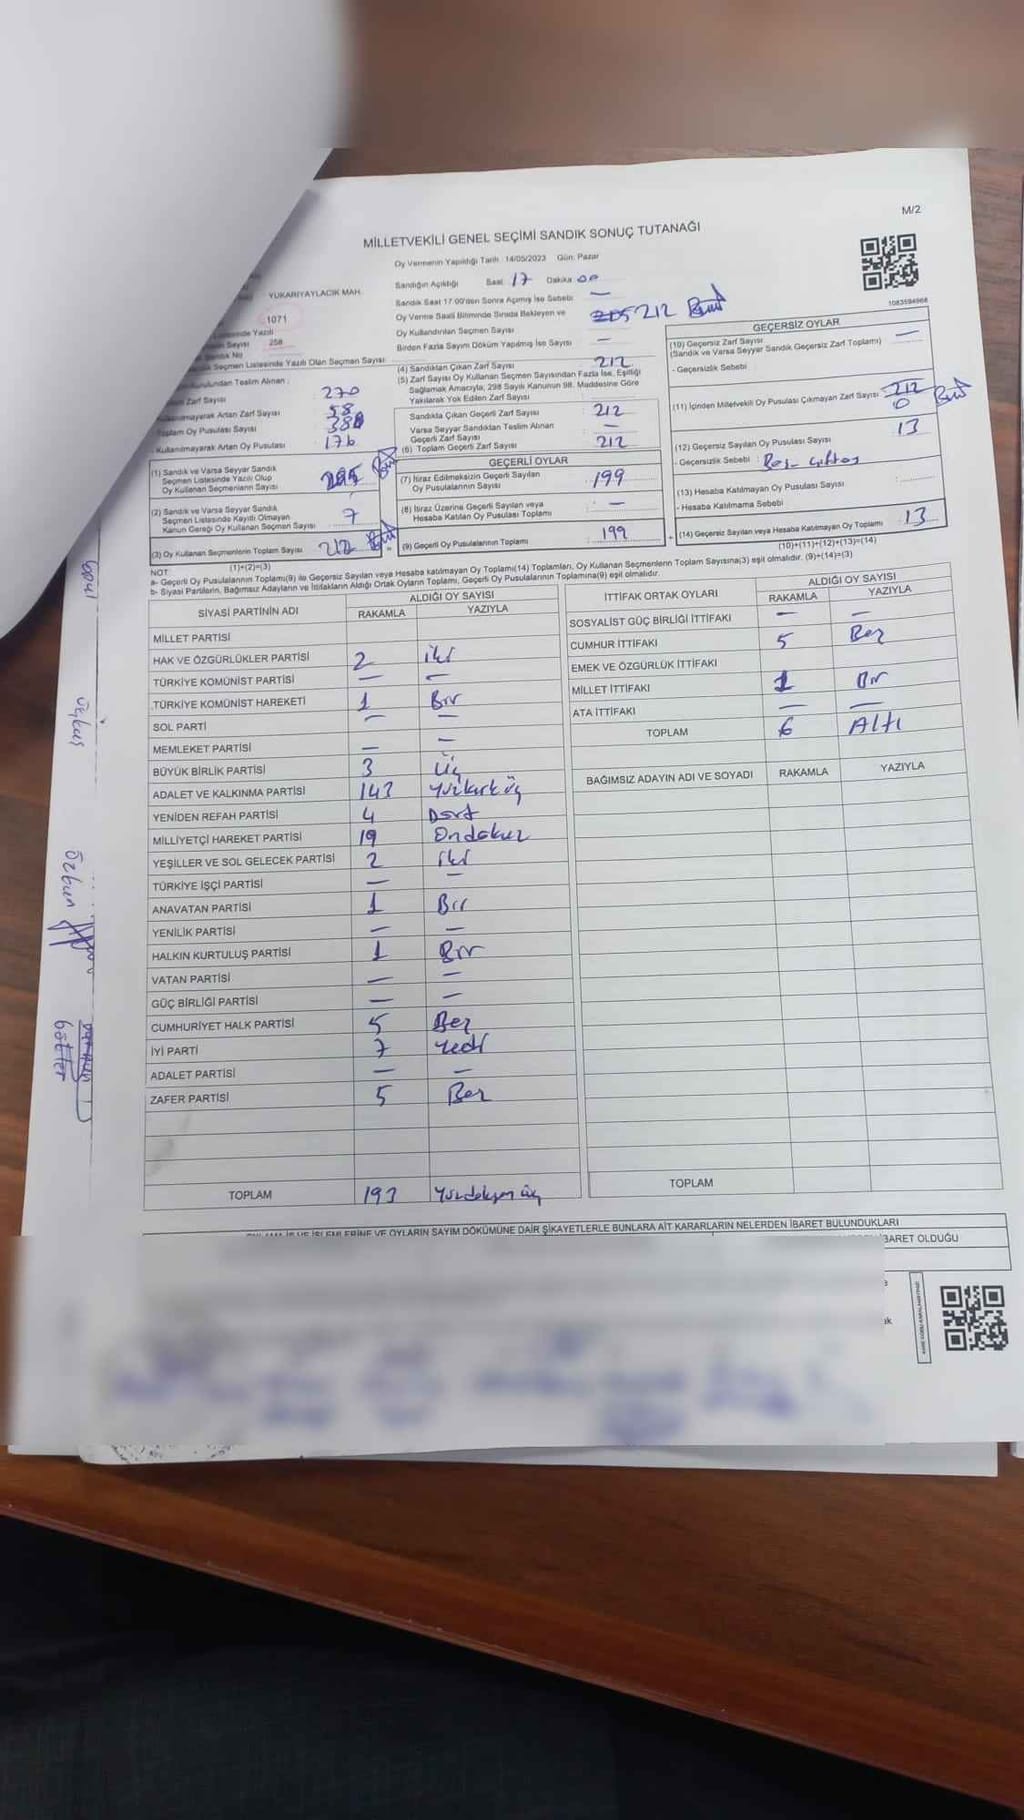 M/2
MİLLETVEKİLİ GENEL SEÇİMİ SANDIK SONUÇ TUTANAĞI
Oy Vermenin Yapıldığı Tarih : 14/05/2023 Gün: Pazar
Sandığın Açıldığı Saat 17 Dakika 00
Sandık Saat 17.00'den Sonra Açılmış İse Sebebi : —
Oy Verme Saati Bitiminde Sırada Bekleyen ve
Oy Kullandırılan Seçmen Sayısı 212
Birden Fazla Sayım Döküm Yapılmış İse Sayısı : —
YUKARIYAYLACIK MAH.
1071
258
Seçmen Listesinde Yazılı Olan Seçmen Sayısı :
Kurulundan Teslim Alınan :
Zarf Sayısı : 270
Kullanılmayarak Artan Zarf Sayısı : 58
Toplam Oy Pusulası Sayısı
Kullanılmayarak Artan Oy Pusulası : 176
(1) Sandık ve Varsa Seyyar Sandık
Seçmen Listesinde Yazılı Olup
Oy Kullanan Seçmenlerin Sayısı
(2) Sandık ve Varsa Seyyar Sandık
Seçmen Listesinde Kayıtlı Olmayan
Kanun Gereği Oy Kullanan Seçmen Sayısı : 7
(3) Oy Kullanan Seçmenlerin Toplam Sayısı 212
(1)+(2)=(3)
(4) Sandıktan Çıkan Zarf Sayısı : 212
(5) Zarf Sayısı Oy Kullanan Seçmen Sayısından Fazla İse, Eşitliği
Sağlamak Amacıyla, 298 Sayılı Kanunun 98. Maddesine Göre
Yakılarak Yok Edilen Zarf Sayısı
Sandıkta Çıkan Geçerli Zarf Sayısı : 212
Varsa Seyyar Sandıktan Teslim Alınan
Geçerli Zarf Sayısı : —
(6) Toplam Geçerli Zarf Sayısı : 212
GEÇERLİ OYLAR
(7) İtiraz Edilmeksizin Geçerli Sayılan
Oy Pusulalarının Sayısı : 199
(8) İtiraz Üzerine Geçerli Sayılan veya
Hesaba Katılan Oy Pusulası Toplamı : —
(9) Geçerli Oy Pusulalarının Toplamı : 199
1083594968
GEÇERSİZ OYLAR
(10) Geçersiz Zarf Sayısı —
(Sandık ve Varsa Seyyar Sandık Geçersiz Zarf Toplamı)
- Geçersizlik Sebebi
(11) İçinden Milletvekili Oy Pusulası Çıkmayan Zarf Sayısı : 212
0
(12) Geçersiz Sayılan Oy Pusulası Sayısı : 13
- Geçersizlik Sebebi :
(13) Hesaba Katılmayan Oy Pusulası Sayısı
- Hesaba Katılmama Sebebi
(14) Geçersiz Sayılan veya Hesaba Katılmayan Oy Toplamı : 13
(10)+(11)+(12)+(13)=(14)
NOT:
a- Geçerli Oy Pusulalarının Toplamı(9) ile Geçersiz Sayılan veya Hesaba katılmayan Oy Toplamı(14) Toplamları, Oy Kullanan Seçmenlerin Toplam Sayısına(3) eşit olmalıdır. (9)+(14)=(3)
b- Siyasi Partilerin, Bağımsız Adayların ve İttifakların Aldığı Ortak Oyların Toplamı, Geçerli Oy Pusulalarının Toplamına(9) eşit olmalıdır.
SİYASİ PARTİNİN ADI ALDIĞI OY SAYISI
RAKAMLA YAZIYLA
MİLLET PARTİSİ
HAK VE ÖZGÜRLÜKLER PARTİSİ 2 iki
TÜRKİYE KOMÜNİST PARTİSİ — —
TÜRKİYE KOMÜNİST HAREKETİ 1 Bir
SOL PARTİ — —
MEMLEKET PARTİSİ — —
BÜYÜK BİRLİK PARTİSİ 3 üç
ADALET VE KALKINMA PARTİSİ 143 Yüzkırküç
YENİDEN REFAH PARTİSİ 4 Dört
MİLLİYETÇİ HAREKET PARTİSİ 19 Ondokuz
YEŞİLLER VE SOL GELECEK PARTİSİ 2 iki
TÜRKİYE İŞÇİ PARTİSİ — —
ANAVATAN PARTİSİ 1 Bir
YENİLİK PARTİSİ — —
HALKIN KURTULUŞ PARTİSİ 1 Bir
VATAN PARTİSİ — —
GÜÇ BİRLİĞİ PARTİSİ — —
CUMHURİYET HALK PARTİSİ 5 Beş
İYİ PARTİ 7 Yedi
ADALET PARTİSİ — —
ZAFER PARTİSİ 5 Beş
TOPLAM 193 Yüzdoksan üç
İTTİFAK ORTAK OYLARI ALDIĞI OY SAYISI
RAKAMLA YAZIYLA
SOSYALİST GÜÇ BİRLİĞİ İTTİFAKI — —
CUMHUR İTTİFAKI 5 Beş
EMEK VE ÖZGÜRLÜK İTTİFAKI
MİLLET İTTİFAKI 1 Bir
ATA İTTİFAKI — —
TOPLAM 6 Altı
BAĞIMSIZ ADAYIN ADI VE SOYADI RAKAMLA YAZIYLA
TOPLAM
İŞLEMLERİNE VE OYLARIN SAYIM DÖKÜMÜNE DAİR ŞİKAYETLERLE BUNLARA AİT KARARLARIN NELERDEN İBARET BULUNDUKLARI
İBARET OLDUĞU